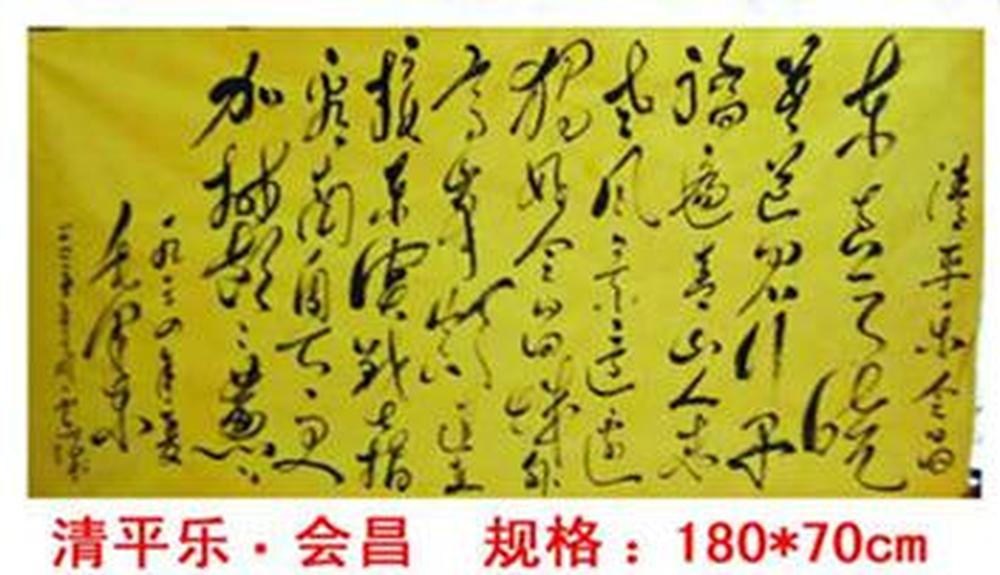 清平乐会昌
东方欲晓
莫道君行早
踏遍青山人未
老风景这边
独好会昌城外
高峰颠连直
接东溟战士指
看南粤更
加郁郁葱葱
一九三四年夏
毛泽东
清平乐·会昌 规格：180*70cm